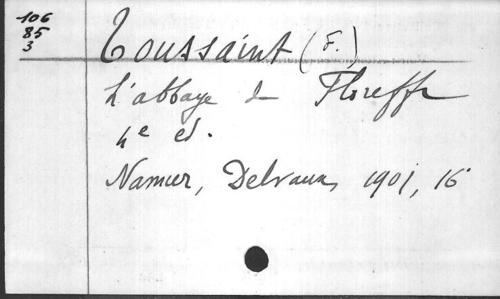 106
85
3
Toussaint (F.)
L'abbaye de Floreffe
4e éd.
Namur, Delvaux, 1901, 16°